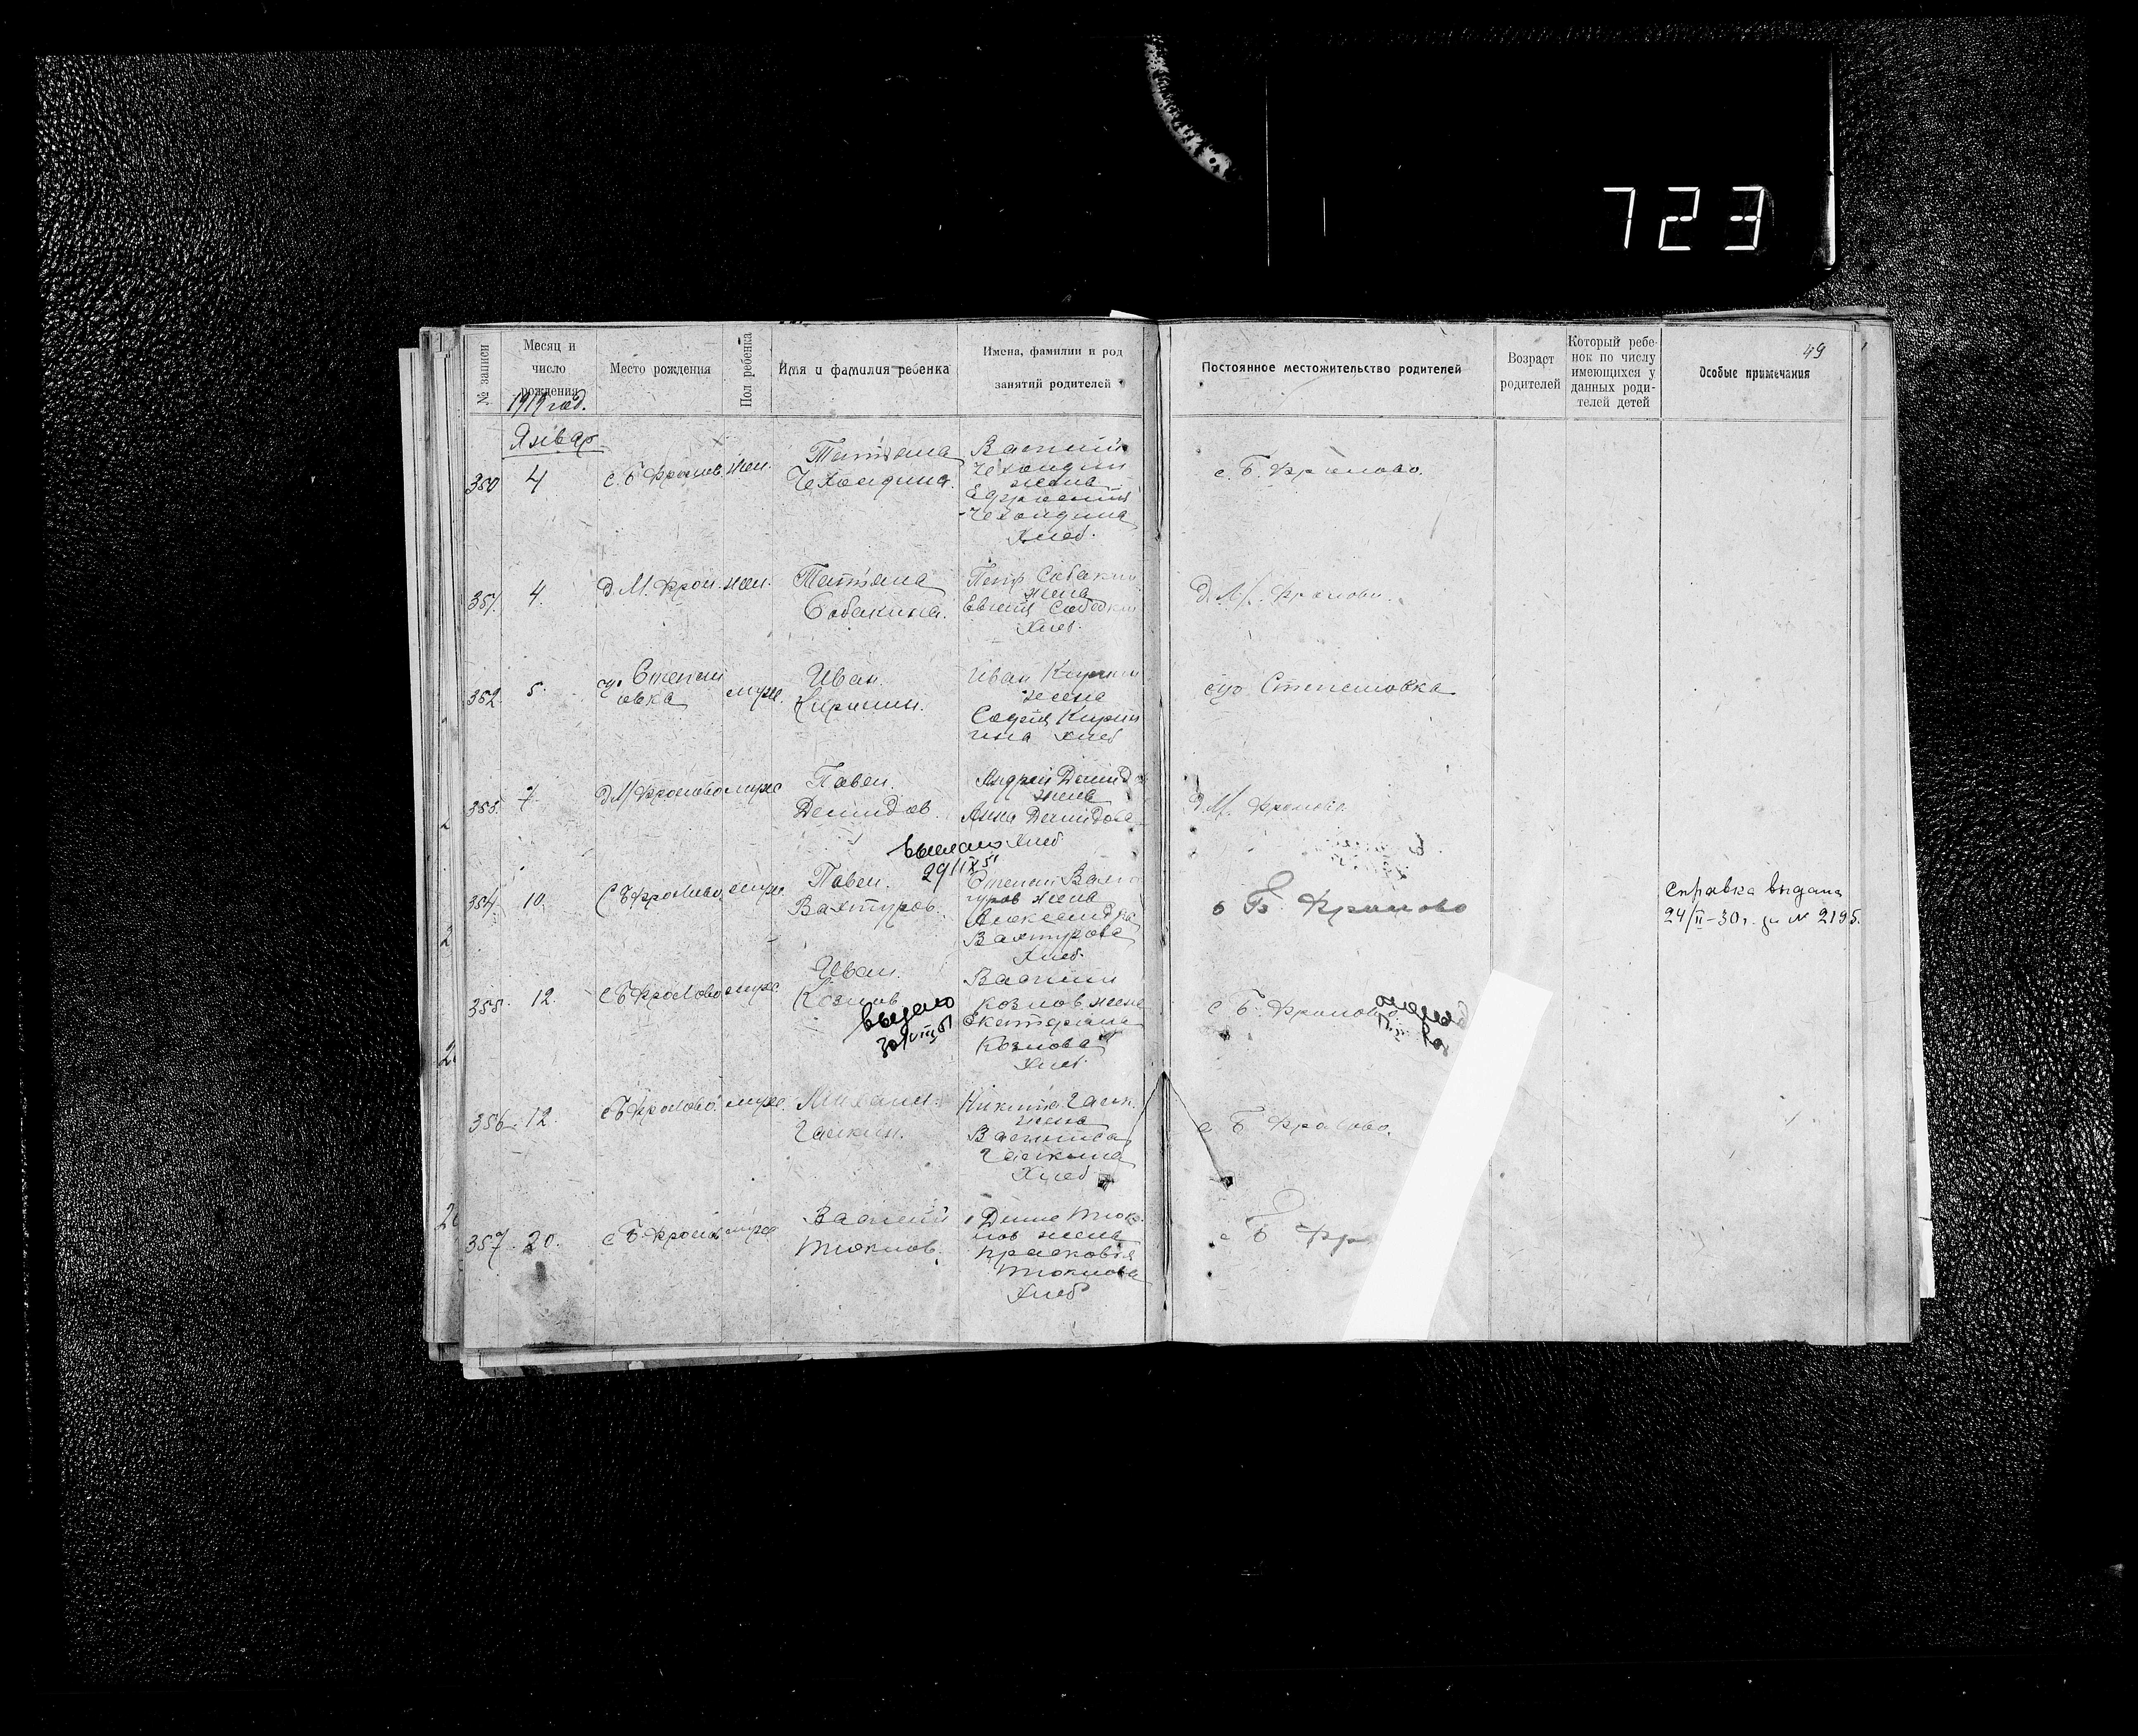 723
49
№ записи
Месяц и
число
рождения
Место рождения
Пол ребенка
Имя и фамилия ребенка
Имена, фамилии и род
занятий родителей
Постоянное местожительство родителей
Возраст
родителей
Который ребе-
нок по числу
имеющихся у
данных роди-
телей детей
Особые примечания
1919 год.
Январ
350 4 с. Б. Фролов. жен.
Татьяна
Чехондина.
Василий
Чехондин
жена
Чехондина
Хлеб.
с. Б. Фролово.
351. 4. д. М. Фрол. жен.
Татьяна
Собакина.
Петр Собакин
жена
Евгения Собакин
Хлеб.
д. М. Фролово.
352 5.
Степан
овка
муж.
Иван
Киринин.
Иван
жена
София Кирин
ина Хлеб
Степановка
353. 7. д М Фролово муж
Павел.
Демидов.
Андрей Демидо
жена
Анна Демидова
Хлеб.
д. М. Фролово
выслано
29/IX 51
354. 10. С Б Фролово муж
Павел.
Вахтуров.
Степан Вахт
уров жена
Александра
Вахтурова
Хлеб.
с Б. Фролово
Справка выдана
24/II-30г. за № 2195.
355. 12. с Б Фролово муж
Иван.
Козлов
выдано
Василий
Козлов жена
Екатерина
Козлова
Хлеб.
с Б. Фролово
356. 12. с Б Фролово муж.
Михаил.
Галкин.
Никита Галк.
жена
Василиса
Галкина
Хлеб
с Б Фролово.
357. 20. с Б. Фролов муж
Василий
Тюклов.
Тюк
лов жена
Прасковья
Тюклова
Хлеб
с Б Фр